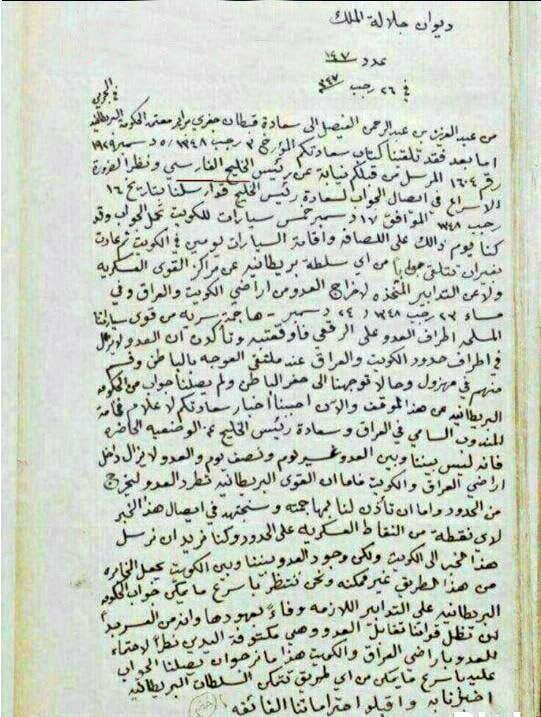 ديوان جلالة الملك
عدد ١٤٧
في ٢٦ رجب ٣٤٧
في الجرعي
من عبد العزيز بن عبد الرحمن الفيصل الى سعادة قبطان جفري معتمد الحكومة البريطانية
اما بعد فقد تلقينا كتاب سعادتكم المؤرخ ٣ رجب ١٣٤٨ / ٥ دسمبر ١٩٢٩
رقم ١٦٠٤ المرسل من قبلكم نيابة عن رئيس الخليج الفارسي ونظرا لضرورة
الاسراع في ايصال الجواب لسعادة رئيس الخليج قد ارسلنا بتاريخ ١٦
رجب ١٣٤٨ الموافق ١٧ دسمبر خمس سيارات للكويت تحمل الجواب وقد
كنا يوم ذالك على اللصافه واقامة السيارات يومين في الكويت وعادت
بغير ان نتلقى جوابا من اي سلطة بريطانيه عن مراكز القوى العسكريه
ولا عن التدابير المتخذه لاخراج العدو من اراضي الكويت والعراق وفي
مساء ٢٣ رجب ١٣٤٨ / ٢٤ دسمبر - هاجمة سريه من قوى سياراتنا
المسلحه اطراف العدو على الرقعي فأوقعته وتأكد ان العدو لا يزال
في اطراف حدود الكويت والعراق عند ملتقى العوجه بالباطن وقسم
منهم في مهزول وحالا توجهنا الى حفر الباطن ولم يصلنا جواب من الحكومة
البريطانيه عن هذا الموقف والان احببنا اخبار سعادتكم لاعلام فخامة
المندوب السامي في العراق وسعادة رئيس الخليج عن الوضعيه الحاضره
فانه ليس بيننا وبين العدو غير يوم ونصف يوم والعدو لا يزال داخل
اراضي العراق والكويت فاما ان القوى البريطانيه تطرد العدو ليخرج
من الحدود واما ان تأذن لنا بمهاجمته وسنجتهد في ايصال هذا الخبر
لاي نقطة من النقاط العسكريه على الحدود وكنا نريد ان نرسل
هذا الخبر الى الكويت ولكن وجود العدو بيننا وبين الكويت يجعل المخابره
من هذا الطريق غير ممكنه ونحن ننتظر باسرع ما يمكن جواب الحكومة
البريطانيه على التدابير اللازمه وفاءً بعهودها وانه من الغريب
ان تظل قواتنا تقابل العدو وهي مكتوفة اليدي نظراً لاحتماء
العدو باراضي العراق والكويت هذا ما نرجو ان يصلنا الجواب
عليه باسرع ما يمكن من اي طريق تتمكن السلطات البريطانيه
اخبارنا به واقبلوا احتراماتنا الفائقه
ختم